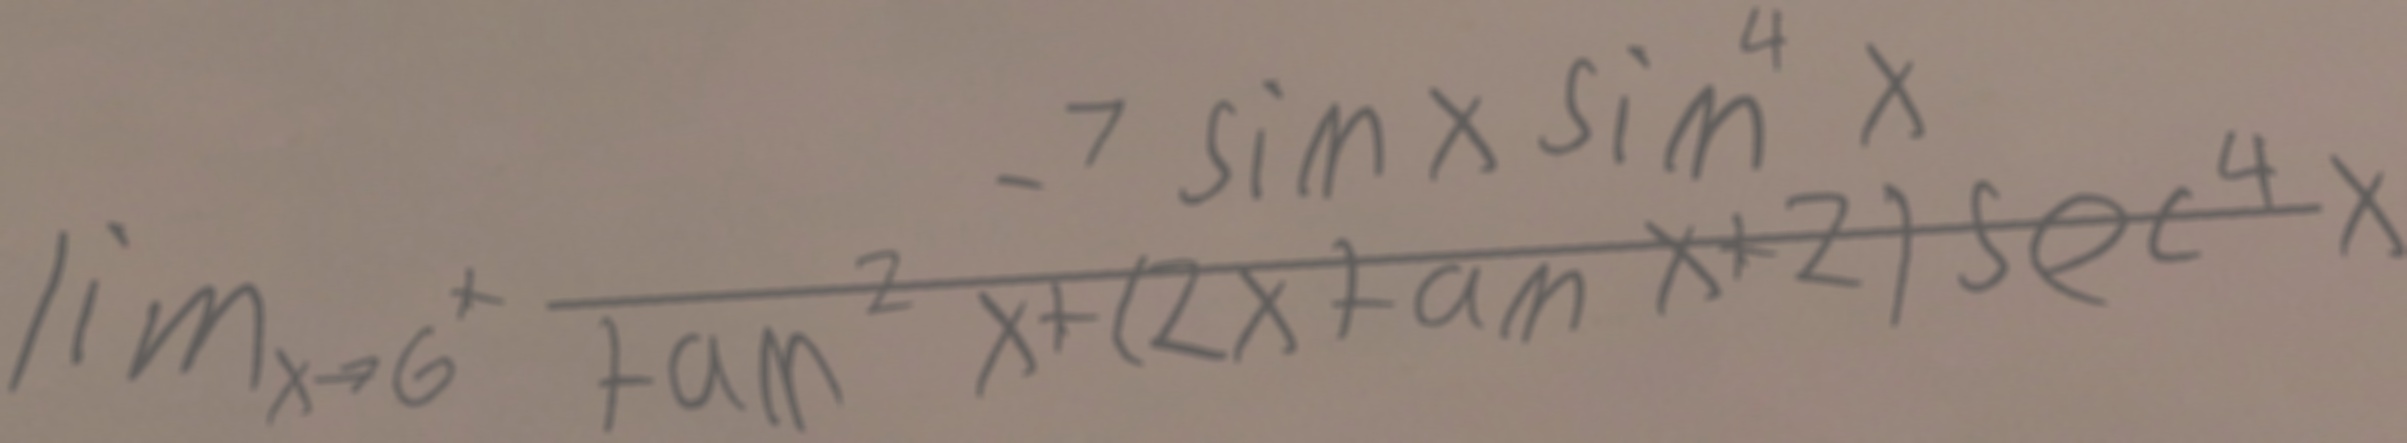 lim_{x→6^+} \frac{-7 sin x sin^4 x}{tan^2 x+(2x+an x+2) sec^4 x}